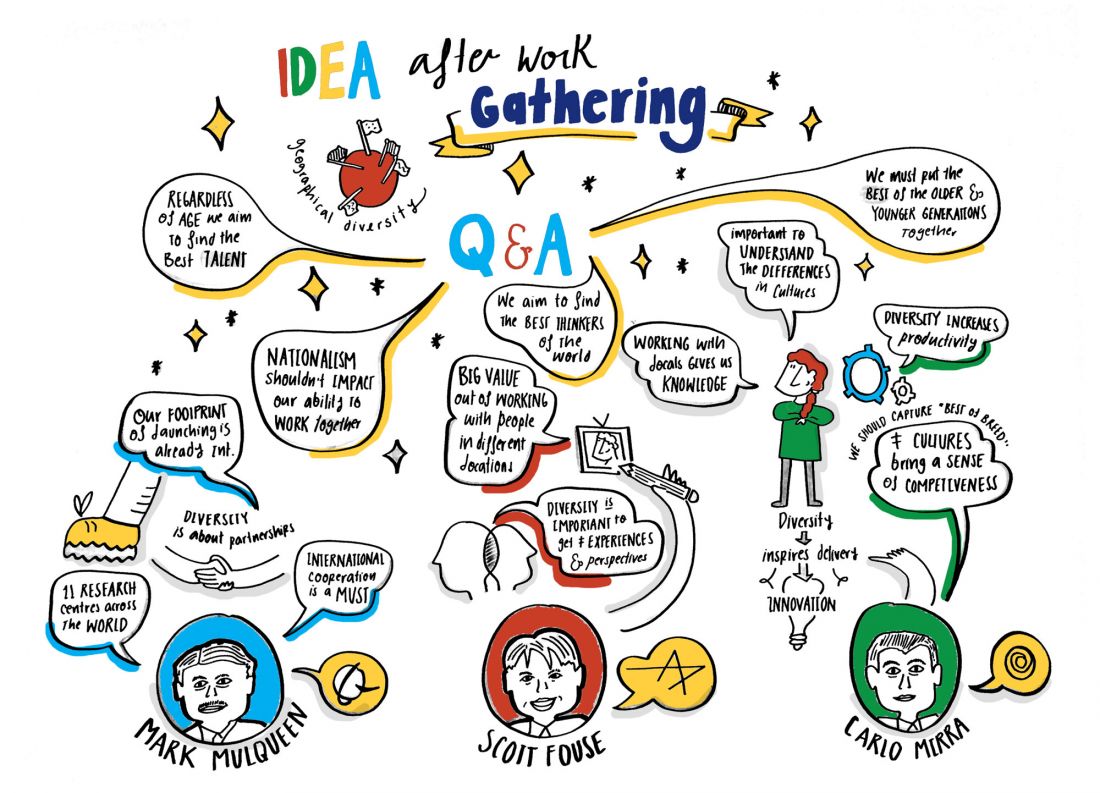 IDEA after work
Gathering
geographical diversity
Q & A
REGARDLESS
of AGE we aim
to find the
Best TALENT
We must put the
BEST of the OLDER &
YOUNGER GENERATIONS
together
NATIONALISM
shouldn't IMPACT
our ability to
WORK together
We aim to find
the BEST THINKERS
of the
world
important to
UNDERSTAND
the DIFFERENCES
in cultures
WORKING with
locals GIVES US
KNOWLEDGE
DIVERSITY INCREASES
productivity
WE SHOULD CAPTURE "BEST of BREED"
≠ CULTURES
bring a SENSE
of COMPETIVENESS
Diversity
inspires delivery
INNOVATION
Our FOOTPRINT
of launching is
already Int.
DIVERSITY
is about partnerships
11 RESEARCH
centres across
the WORLD
INTERNATIONAL
cooperation
is a MUST
MARK MULQUEEN
BIG VALUE
out of WORKING
with people
in different
locations
DIVERSITY is
IMPORTANT to
get ≠ EXPERIENCES
& perspectives
SCOTT FOUSE
CARLO MIRRA